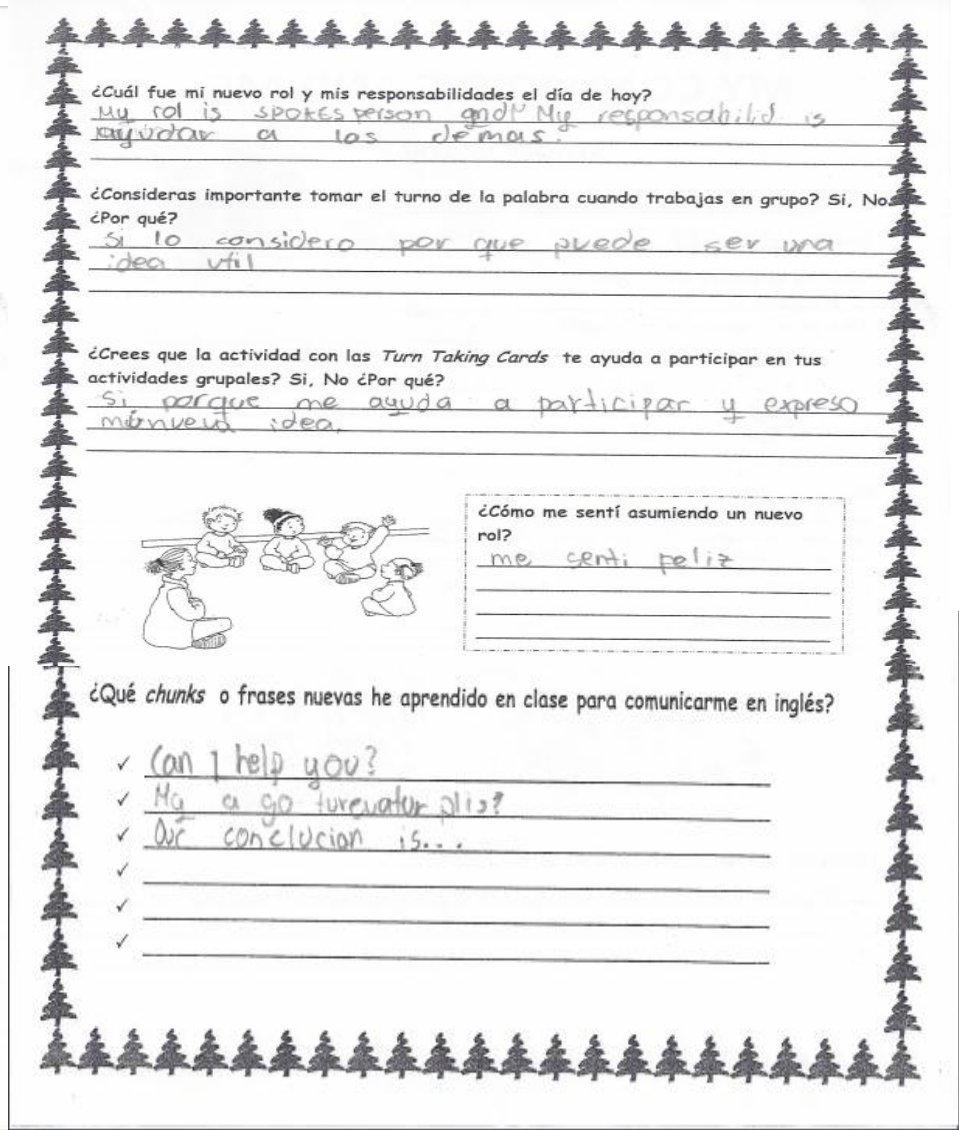 ¿Cuál fue mi nuevo rol y mis responsabilidades el día de hoy?
My rol is spokesperson and My responsabilid is
ayudar a los demas.
¿Consideras importante tomar el turno de la palabra cuando trabajas en grupo? Si, No
¿Por qué?
Si lo considero por que puede ser una
idea util
¿Crees que la actividad con las Turn Taking Cards te ayuda a participar en tus
actividades grupales? Si, No ¿Por qué?
Si porque me ayuda a participar y expreso
mi nueva idea.
¿Cómo me sentí asumiendo un nuevo
rol?
me senti feliz
¿Qué chunks o frases nuevas he aprendido en clase para comunicarme en inglés?
✓ Can I help you?
✓ My a go turevatur plis?
✓ Our conclucion is...
✓
✓
✓